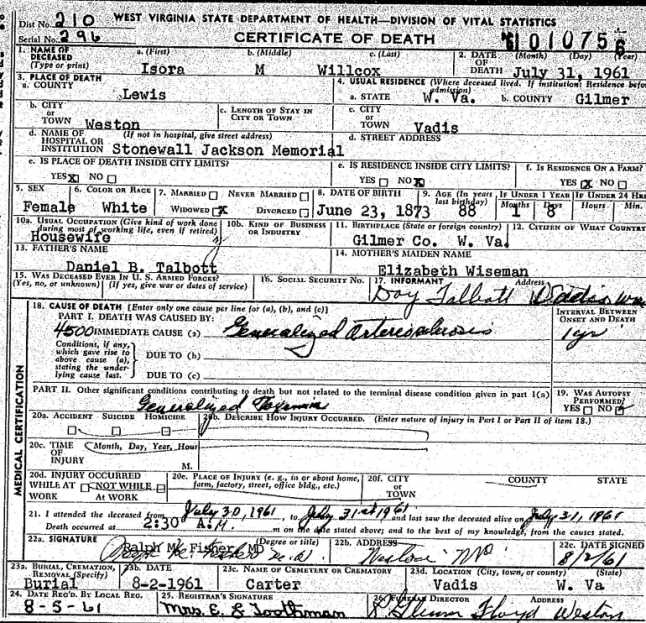 WEST VIRGINIA STATE DEPARTMENT OF HEALTH—DIVISION OF VITAL STATISTICS
Dist No. 210
Serial No. 296
CERTIFICATE OF DEATH
010756
1. NAME OF DECEASED (Type or print) a. (First) b. (Middle) c. (Last) 2. DATE OF DEATH (Month) (Day) (Year)
Isora M Willcox July 31, 1961
3. PLACE OF DEATH 4. USUAL RESIDENCE (Where deceased lived. If institution: Residence before admission)
a. COUNTY Lewis a. STATE W. Va. b. COUNTY Gilmer
b. CITY OR TOWN Weston c. LENGTH OF STAY IN CITY OR TOWN c. CITY OR TOWN Vadis
d. NAME OF HOSPITAL OR INSTITUTION (If not in hospital, give street address) Stonewall Jackson Memorial d. STREET ADDRESS
e. IS PLACE OF DEATH INSIDE CITY LIMITS? e. IS RESIDENCE INSIDE CITY LIMITS? f. IS RESIDENCE ON A FARM?
YES X NO YES NO X YES X NO
5. SEX 6. COLOR OR RACE 7. MARRIED NEVER MARRIED 8. DATE OF BIRTH 9. AGE (In years last birthday) IF UNDER 1 YEAR IF UNDER 24 HR
Female White WIDOWED X DIVORCED June 23, 1873 88 1 8 Hours Min.
10a. USUAL OCCUPATION (Give kind of work done during most of working life, even if retired) 10b. KIND OF BUSINESS OR INDUSTRY 11. BIRTHPLACE (State or foreign country) 12. CITIZEN OF WHAT COUNTRY
Housewife Gilmer Co. W. Va.
13. FATHER'S NAME 14. MOTHER'S MAIDEN NAME
Daniel B. Talbott Elizabeth Wiseman
15. WAS DECEASED EVER IN U. S. ARMED FORCES? 16. SOCIAL SECURITY NO. 17. INFORMANT Address
(Yes, no, or unknown) (If yes, give war or dates of service) Talbott Vadis
18. CAUSE OF DEATH [Enter only one cause per line for (a), (b), and (c)] INTERVAL BETWEEN ONSET AND DEATH
PART I. DEATH WAS CAUSED BY:
4500 IMMEDIATE CAUSE (a) Generalized Arteriosclerosis 1 yr
Conditions, if any, which gave rise to above cause (a), stating the underlying cause last.
DUE TO (b)
DUE TO (c)
PART II. Other significant conditions contributing to death but not related to the terminal disease condition given in part 1(a) 19. WAS AUTOPSY PERFORMED?
Generalized YES NO
20a. ACCIDENT SUICIDE HOMICIDE 20b. DESCRIBE HOW INJURY OCCURRED. (Enter nature of injury in Part I or Part II of item 18.)
20c. TIME OF INJURY Month, Day, Year, Hour M.
20d. INJURY OCCURRED 20e. PLACE OF INJURY (e. g., in or about home, farm, factory, street, office bldg., etc.) 20f. CITY OR TOWN COUNTY STATE
WHILE AT WORK NOT WHILE AT WORK
21. I attended the deceased from July 30, 1961, to July 31st 1961 and last saw the deceased alive on July 31, 1961
Death occurred at 2:30 A.M. m on the date stated above; and to the best of my knowledge, from the causes stated.
22a. SIGNATURE (Degree or title) 22b. ADDRESS 22c. DATE SIGNED
Ralph M. Fisher, MD 8/2/61
23a. BURIAL, CREMATION, REMOVAL (Specify) 23b. DATE 23c. NAME OF CEMETERY OR CREMATORY 23d. LOCATION (City, town, or county) (State)
Burial 8-2-1961 Carter Vadis W. Va
24. DATE REC'D. BY LOCAL REG. 25. REGISTRAR'S SIGNATURE 26. FUNERAL DIRECTOR ADDRESS
8-5-61 Mrs. E. Floyd Weston
MEDICAL CERTIFICATION